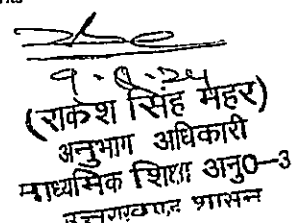 (राकेश सिंह महर)
अनुभाग अधिकारी
माध्यमिक शिक्षा अनु0-3
उत्तराखण्ड शासन